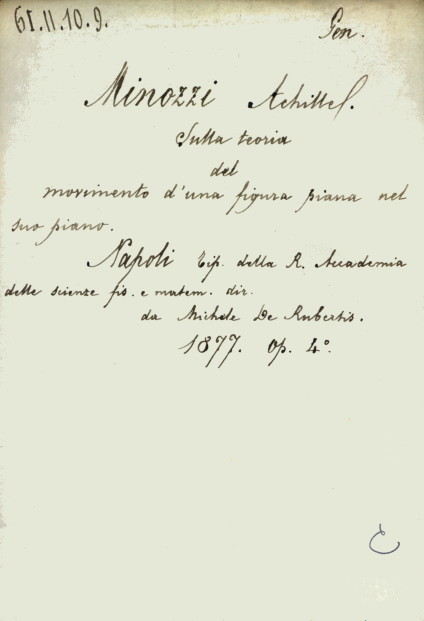 61.11.10.9.
Gen.
Minozzi Achille.
Sulla teoria
del
movimento d'una figura piana nel
suo piano.
Napoli Tip. della R. Accademia
delle scienze fis. e matem. dir.
da Michele De Rubertis.
1877. Op. 4°.